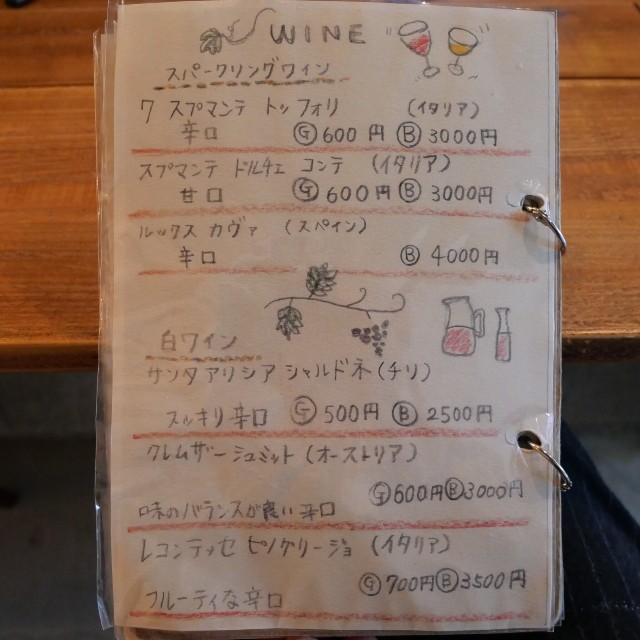 WINE
スパークリングワイン
7 スプマンテ トッフォリ (イタリア)
辛口 Ⓖ600円 Ⓑ3000円
スプマンテ ドルチェ コンテ (イタリア)
甘口 Ⓖ600円 Ⓑ3000円
ルックス カヴァ (スペイン)
辛口 Ⓑ4000円
白ワイン
サンタアリシア シャルドネ(チリ)
スッキリ辛口 Ⓖ500円 Ⓑ2500円
クレムザーシュミット(オーストリア)
Ⓖ600円Ⓑ3000円
味のバランスが良い辛口
レコンテッセ ピノグリージョ (イタリア)
Ⓖ700円Ⓑ3500円
フルーティな辛口